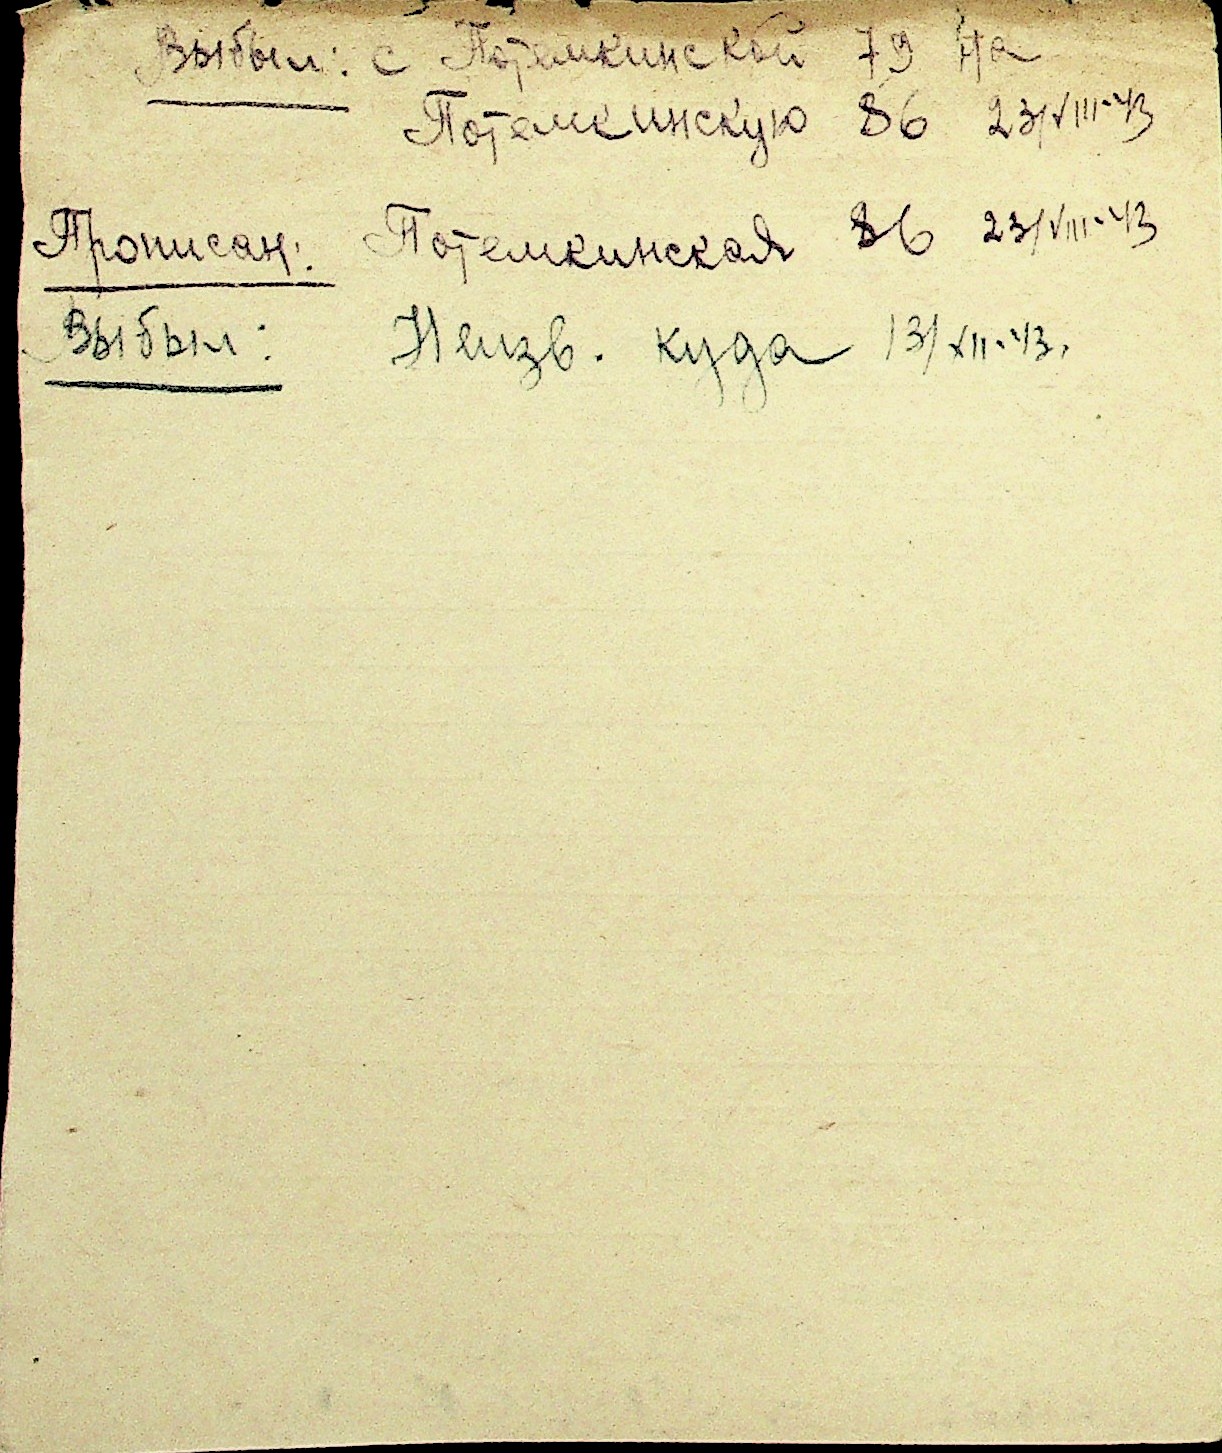 Выбыл: с Потемкинской 79 на
Потемкинскую 86 23/VIII-43
Прописан: Потемкинская 86 23/VIII-43
Выбыл: Неизв. куда 13/XII-43.